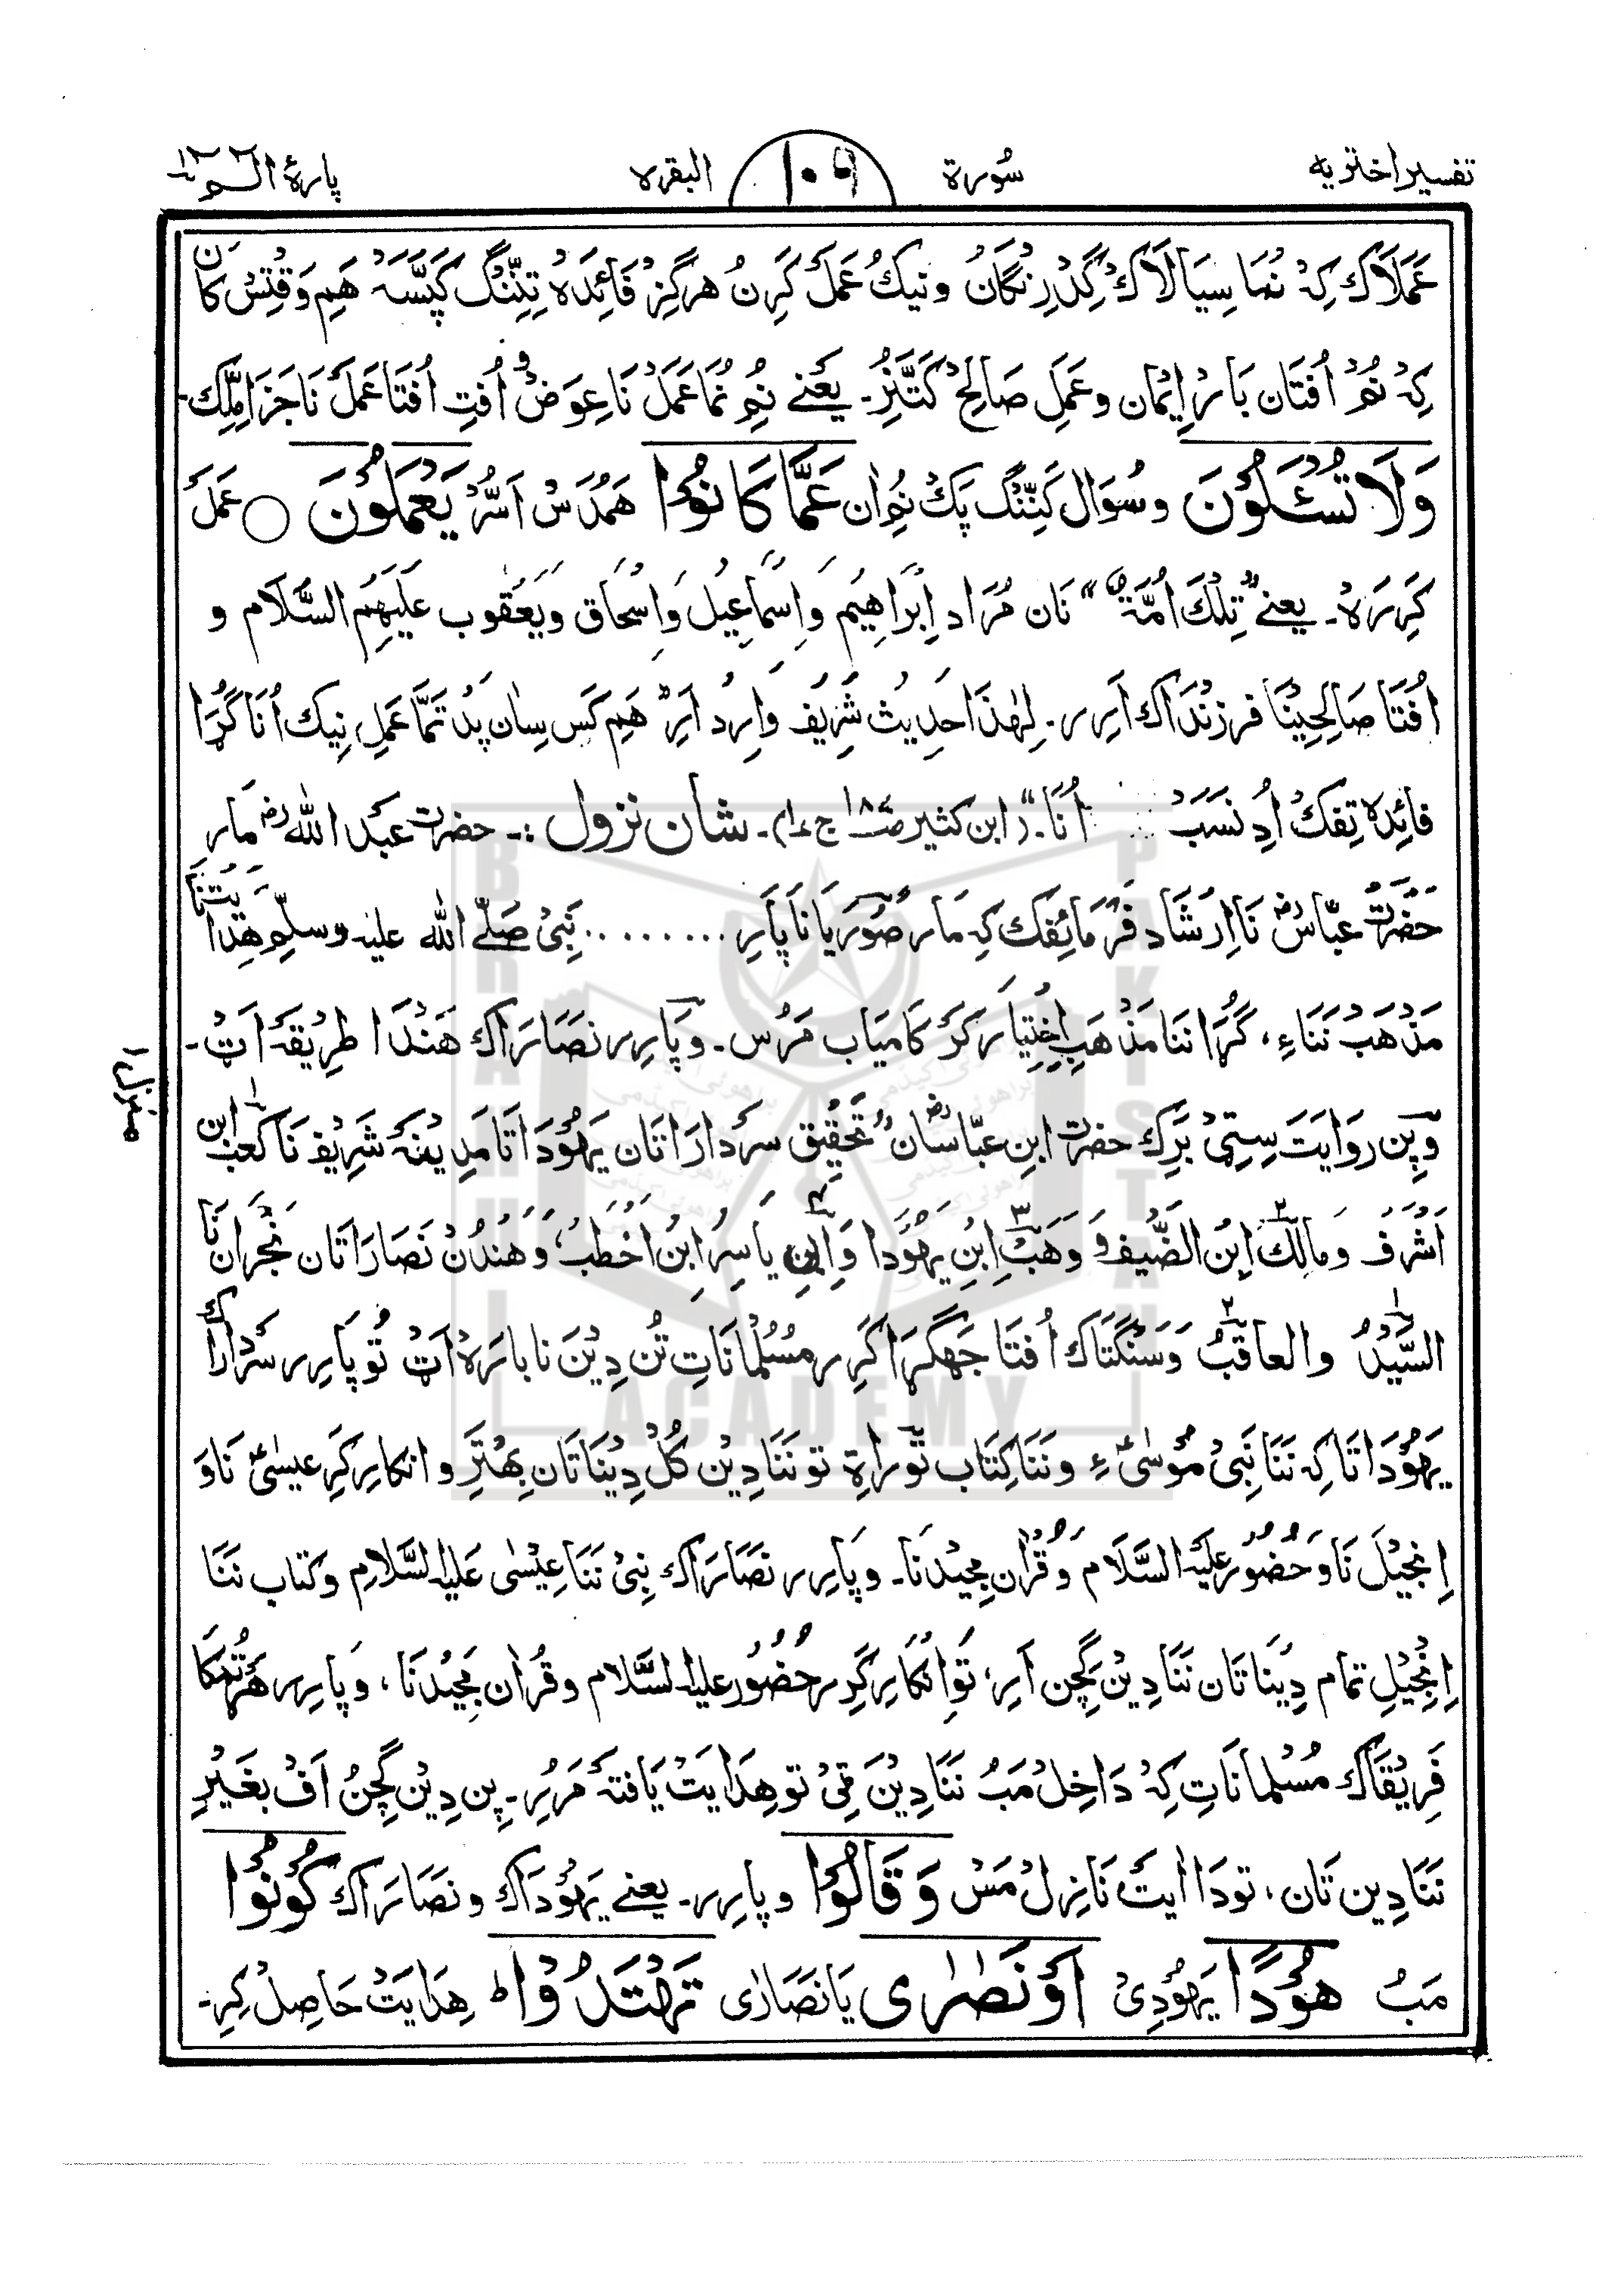 تفسیر اختریه سُورة ۱۰۹ البقره پارۂ الٓـمّٓ
عَمَلَاك كِہ نُمَا سِیَالَاكْ گِدْرِنگانُ ونیكُ عَمَلْ كَرِنُ هرگِز فَائِدَہ تِنِنگ كَپَّسَہْ هَیم وَقْتَسْ كَان
كِہ نُمْ اُفتَان بَارْ اِیْمَان وعَمَلِ صَالِحْ كَتَّنِرْ۔ یَعْنے نُم نُمَا عَمَلْ نَا عِوَضْ و اُفتِ اُفتَا عَمَلْ نَا جَزَا مِلِّك۔
وَلَا تُسْئَلُوْنَ وسُوَال كَنِّنگ پَكْ نُمْ اٰن عَمَّا كَانُوْا هَمُدَسْ اَسُّرْ یَعْمَلُوْنَ ○ عَمَلْ
كَرِرَہْ۔ یعنے "تِلْكَ اُمَّةٌ" نَان مُرَاد اِبْرَاهِیْم وَاِسْمَاعِیْل وَاِسْحَاق وَیَعْقُوب عَلَیْهِمُ السَّلَام و
اُفتَا صَالِحِیْنَا فرزَنْدَاك اَرِر۔ لِهٰذَا حَدِیْث شَرِیْف وَارِدْ اَرِ هَیم كَس سِاٰن پَدْ تَمَّا عَمَلِ نیك اُنَا گُڑَا
فَائِدہ تِفَكْ اُدِ نَسَبْ اُنَا۔" (ابن كثیر صـ۱۸۶ ج ۱)۔ شانِ نزول :۔ حضرت عَبْد اللهؓ مَار
حَضْرَت عَبّاسؓ نَا اِرْشَاد فَرْمَائِفَك كِہ مَار صُوْرِیَا نَا پَارِ ........ نَبِیْ صَلّے الله علیہ وسلّم هِدَایَتْ نَا
مَذْهَبْ نَنَاءِ، گُڑَا نَنَا مَذْهَبِ اِخْتِیَار كَرَ كَامِیَاب مَرُس۔ وَپَارِر نصَارَاك هَنْدَا طَرِیْقَہ اَتْ۔
وَپِن رِوَایَت سِتِیْ بَرِك حضرت ابنِ عبّاسؓ اٰن" تَحْقِیْق سردَارَاتَان یَهُوْدَاتَا مَدِیْنَہ شَرِیْف نَا كَعْبْ ابن
اَشْرَفْ وَمَالِكْ اِبْن الضَّیْف وَوَهْبْ اِبْنِ یَهُوْدَا وَابْنِ یَاسِرْ اِبْنُ اَخْطَبْ، وَهَنْدُنْ نَصَارَاتَان نَجْرَان نَا
السَّیِّدُ والعاقِبُ وَسَنْگَتَاك اُفتَا جَهگَڑَا كَرِر مُسُلْمَانَاتِ تُن دِیْن نَا بَارَہْ اَتْ تُو پَارِر سَرْدَارَاك
یَهُوْدَاتَا كِہ نَنَا نَبِیْ مُوْسٰیؑ ءِ ونَنَا كِتَاب تَوْرَاة تو نَنَا دِیْن كُلْ دِیْنَاتَان بِهْتَرِ و انكارِ كَرِ عیسٰیؑ نَا وَ
اِنجیْلَ نَا وَحُضُوْر عَلَیہ السَّلَام وَقُرْاٰن مَجِیْد نَا۔ وَپَارِر نصَارَاك نَبِیْ نَنَا عِیْسٰی عَلَیہ السَّلَامِ وَكتَاب نَنَا
اِنْجِیْلِ تمام دِیْنَاتَان نَنَا دِیْن گِچِن اَرِ، تَوِ انكَار كَرِر حُضُوْر علیہ السَّلام وقُرْاٰن مَجِیْد نَا، وَپارِر هَرتُمَكَا
فَرِیْقَاك مُسْلمانَاتِ كِہْ دَاخِلْ مَبُ نَنَا دِیْن تِیْ تو هِدَایَتْ یَافْتَہ مَرِر۔ پِن دِیْن گِچِنُ اَفْ بِغَیْرِ
نَنَا دِین تَان، تودَا اٰیَتْ نَازِلْ مَسْ وَقَالُوْا وپارِر۔ یعنے یَهُوْدَاك ونصَارَاك كُوْنُوْا
مَبُ هُوْدًا یَهُوْدِیْ اَوْ نَصٰرٰی یَا نَصَارٰی تَهْتَدُوْا ط هِدَایَتْ حَاصِلْ كِرِ۔
منزل ۱
BRAHUI ACADEMY PAKISTAN